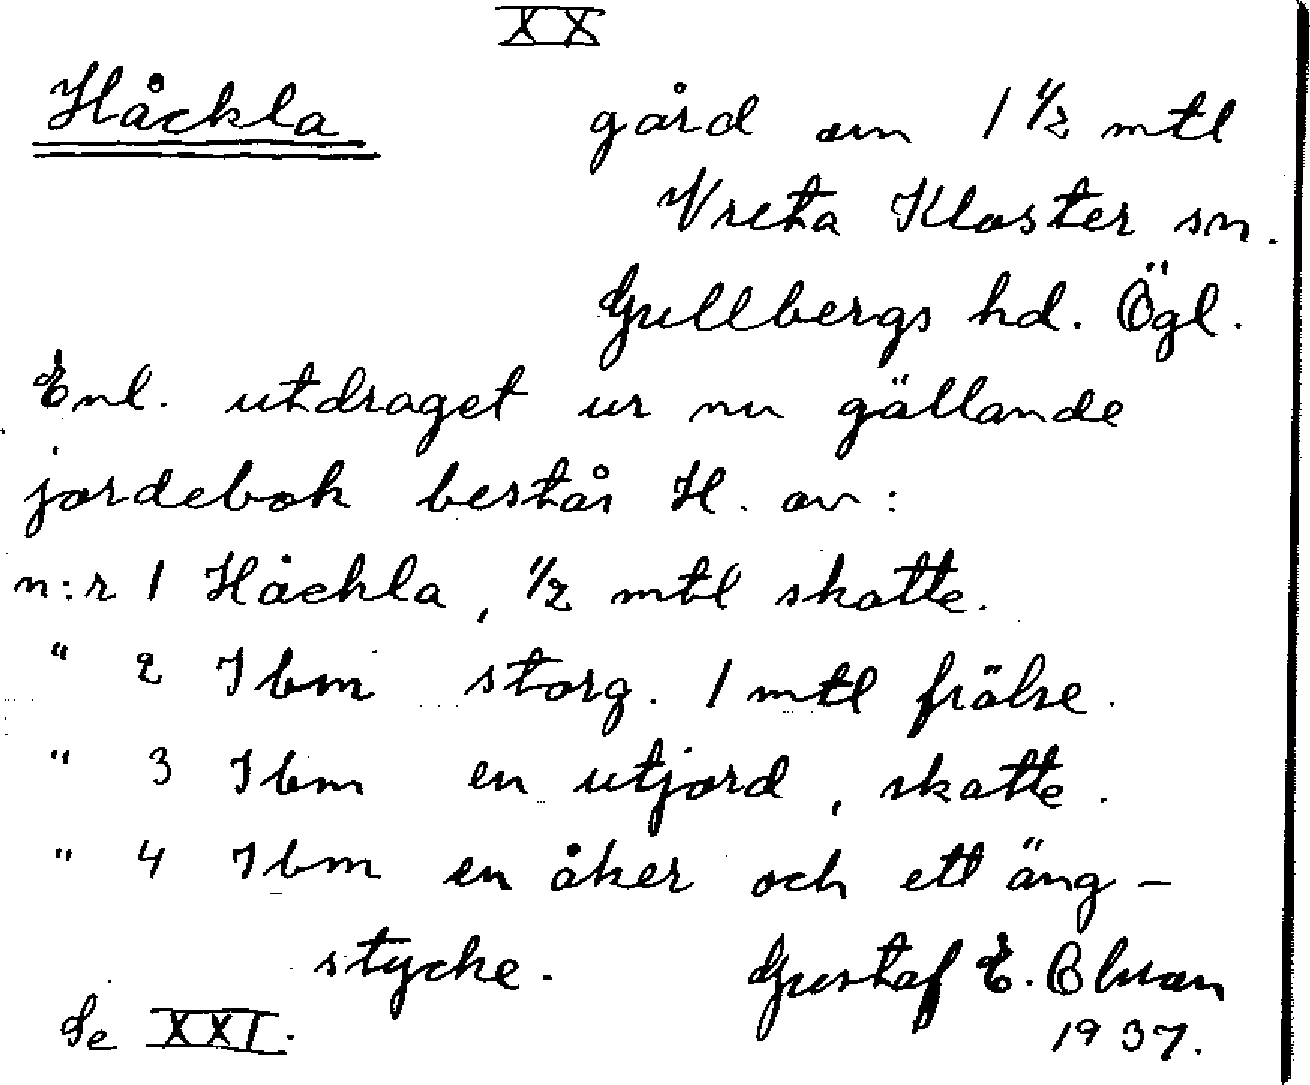 XX
Håckla gård om 1 1/2 mtl
Vreta Kloster sn.
Gullbergs hd. Ögl.
Enl. utdraget ur nu gällande
jordebok bestås H. av:
n:r 1 Håckla, 1/2 mtl skatte.
" 2 Ibm storg. 1 mtl frälse.
" 3 Ibm en utjord, skatte.
" 4 Ibm en åker och ett äng-
stycke. Gustaf E.
Se XXI. 1937.